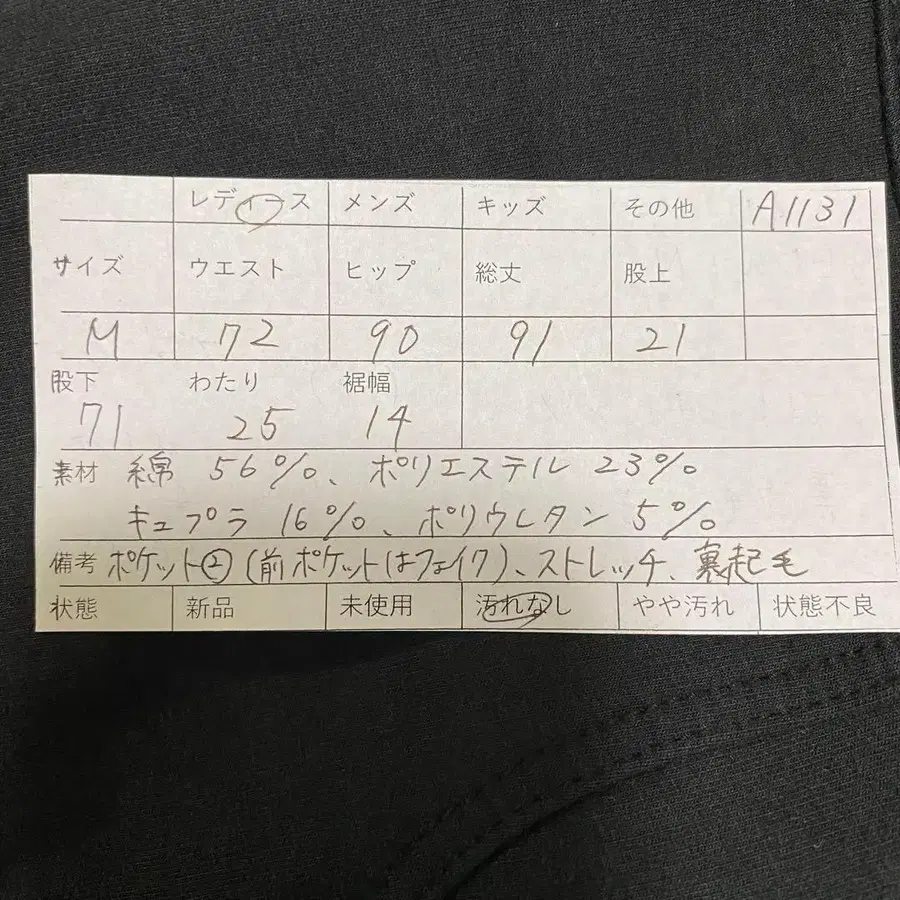 レディース メンズ キッズ その他 A1131
サイズ ウエスト ヒップ 総丈 股上
M 72 90 91 21
股下 わたり 裾幅
71 25 14
素材 綿 56%、ポリエステル 23%
キュプラ 16%、ポリウレタン 5%
備考 ポケット② (前ポケットはフェイク)、ストレッチ、裏起毛
状態 新品 未使用 汚れなし やや汚れ 状態不良